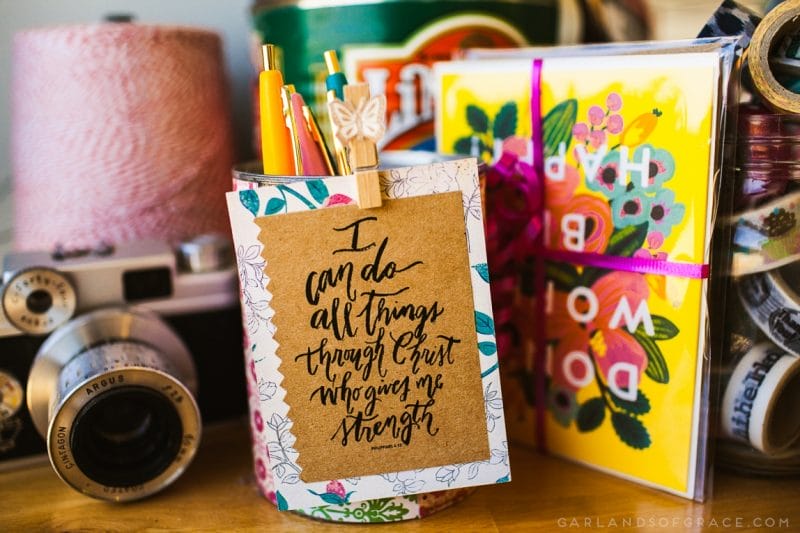 I
can do
all things
through Christ
who gives me
strength
PHILIPPIANS 4:13
ARGUS
CINTAGON
GARLANDSOFGRACE.COM